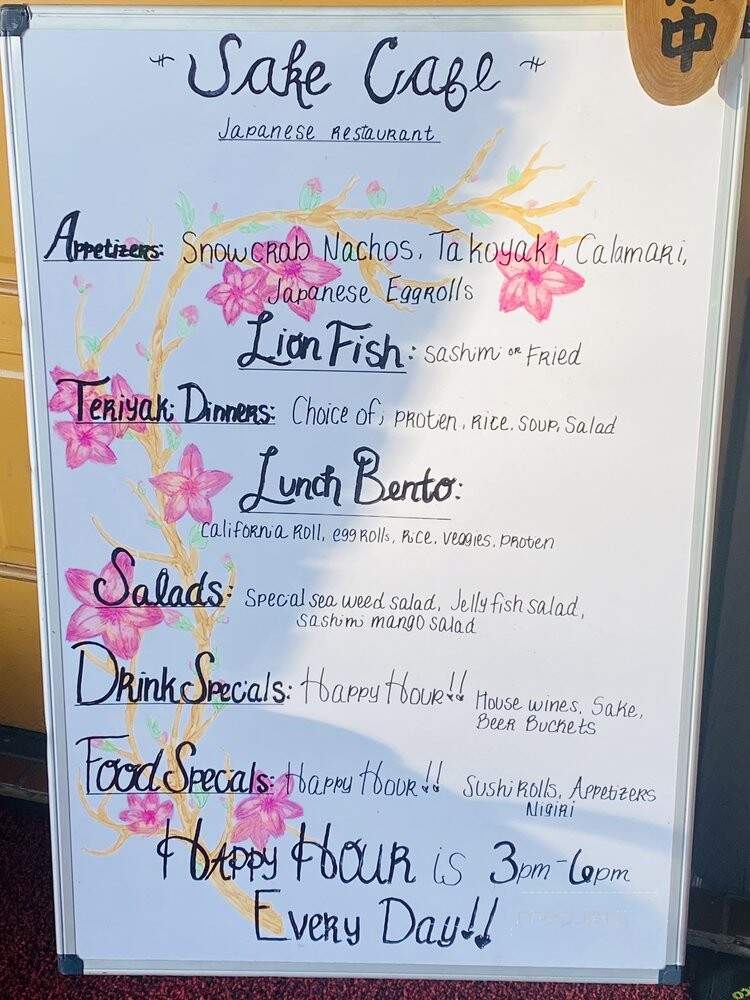 中
Sake Cafe
Japanese Restaurant
Appetizers: Snowcrab Nachos, Takoyaki, Calamari,
Japanese Eggrolls
Lion Fish: Sashimi or Fried
Teriyaki Dinners: Choice of; Proten, Rice, Soup, Salad
Lunch Bento:
California Roll, eggrolls, Rice, Veggies, Proten
Salads: Special sea weed salad, Jellyfish salad,
Sashimi mango salad
Drink Specials: Happy Hour!! House wines, Sake,
Beer Buckets
Food Specials: Happy Hour!! Sushi Rolls, Appetizers
Nigiri
Happy Hour is 3pm-6pm
Every Day!!